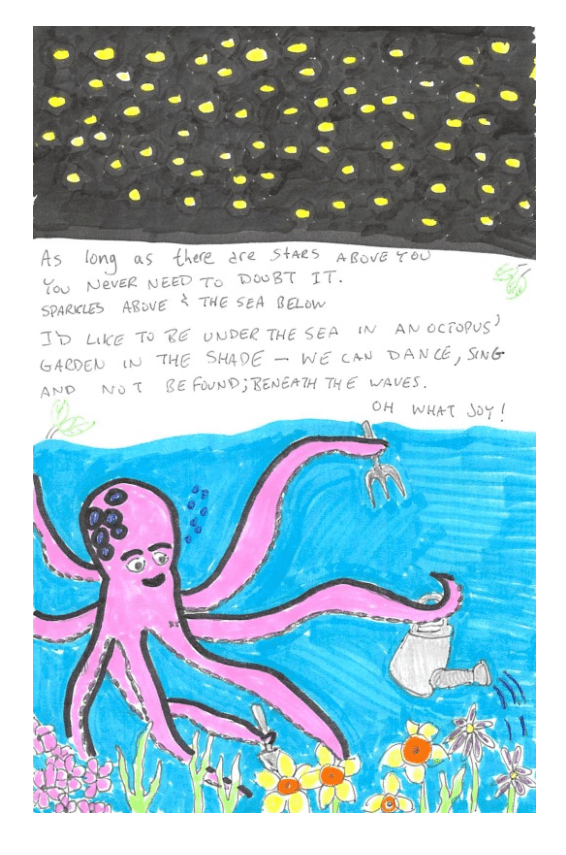 As long as there are STARS ABOVE YOU
YOU NEVER NEED TO DOUBT IT.
SPARKLES ABOVE & THE SEA BELOW
I'D LIKE TO BE UNDER THE SEA IN AN OCTOPUS'
GARDEN IN THE SHADE – WE CAN DANCE, SING
AND NOT BE FOUND; BENEATH THE WAVES.
OH WHAT JOY!